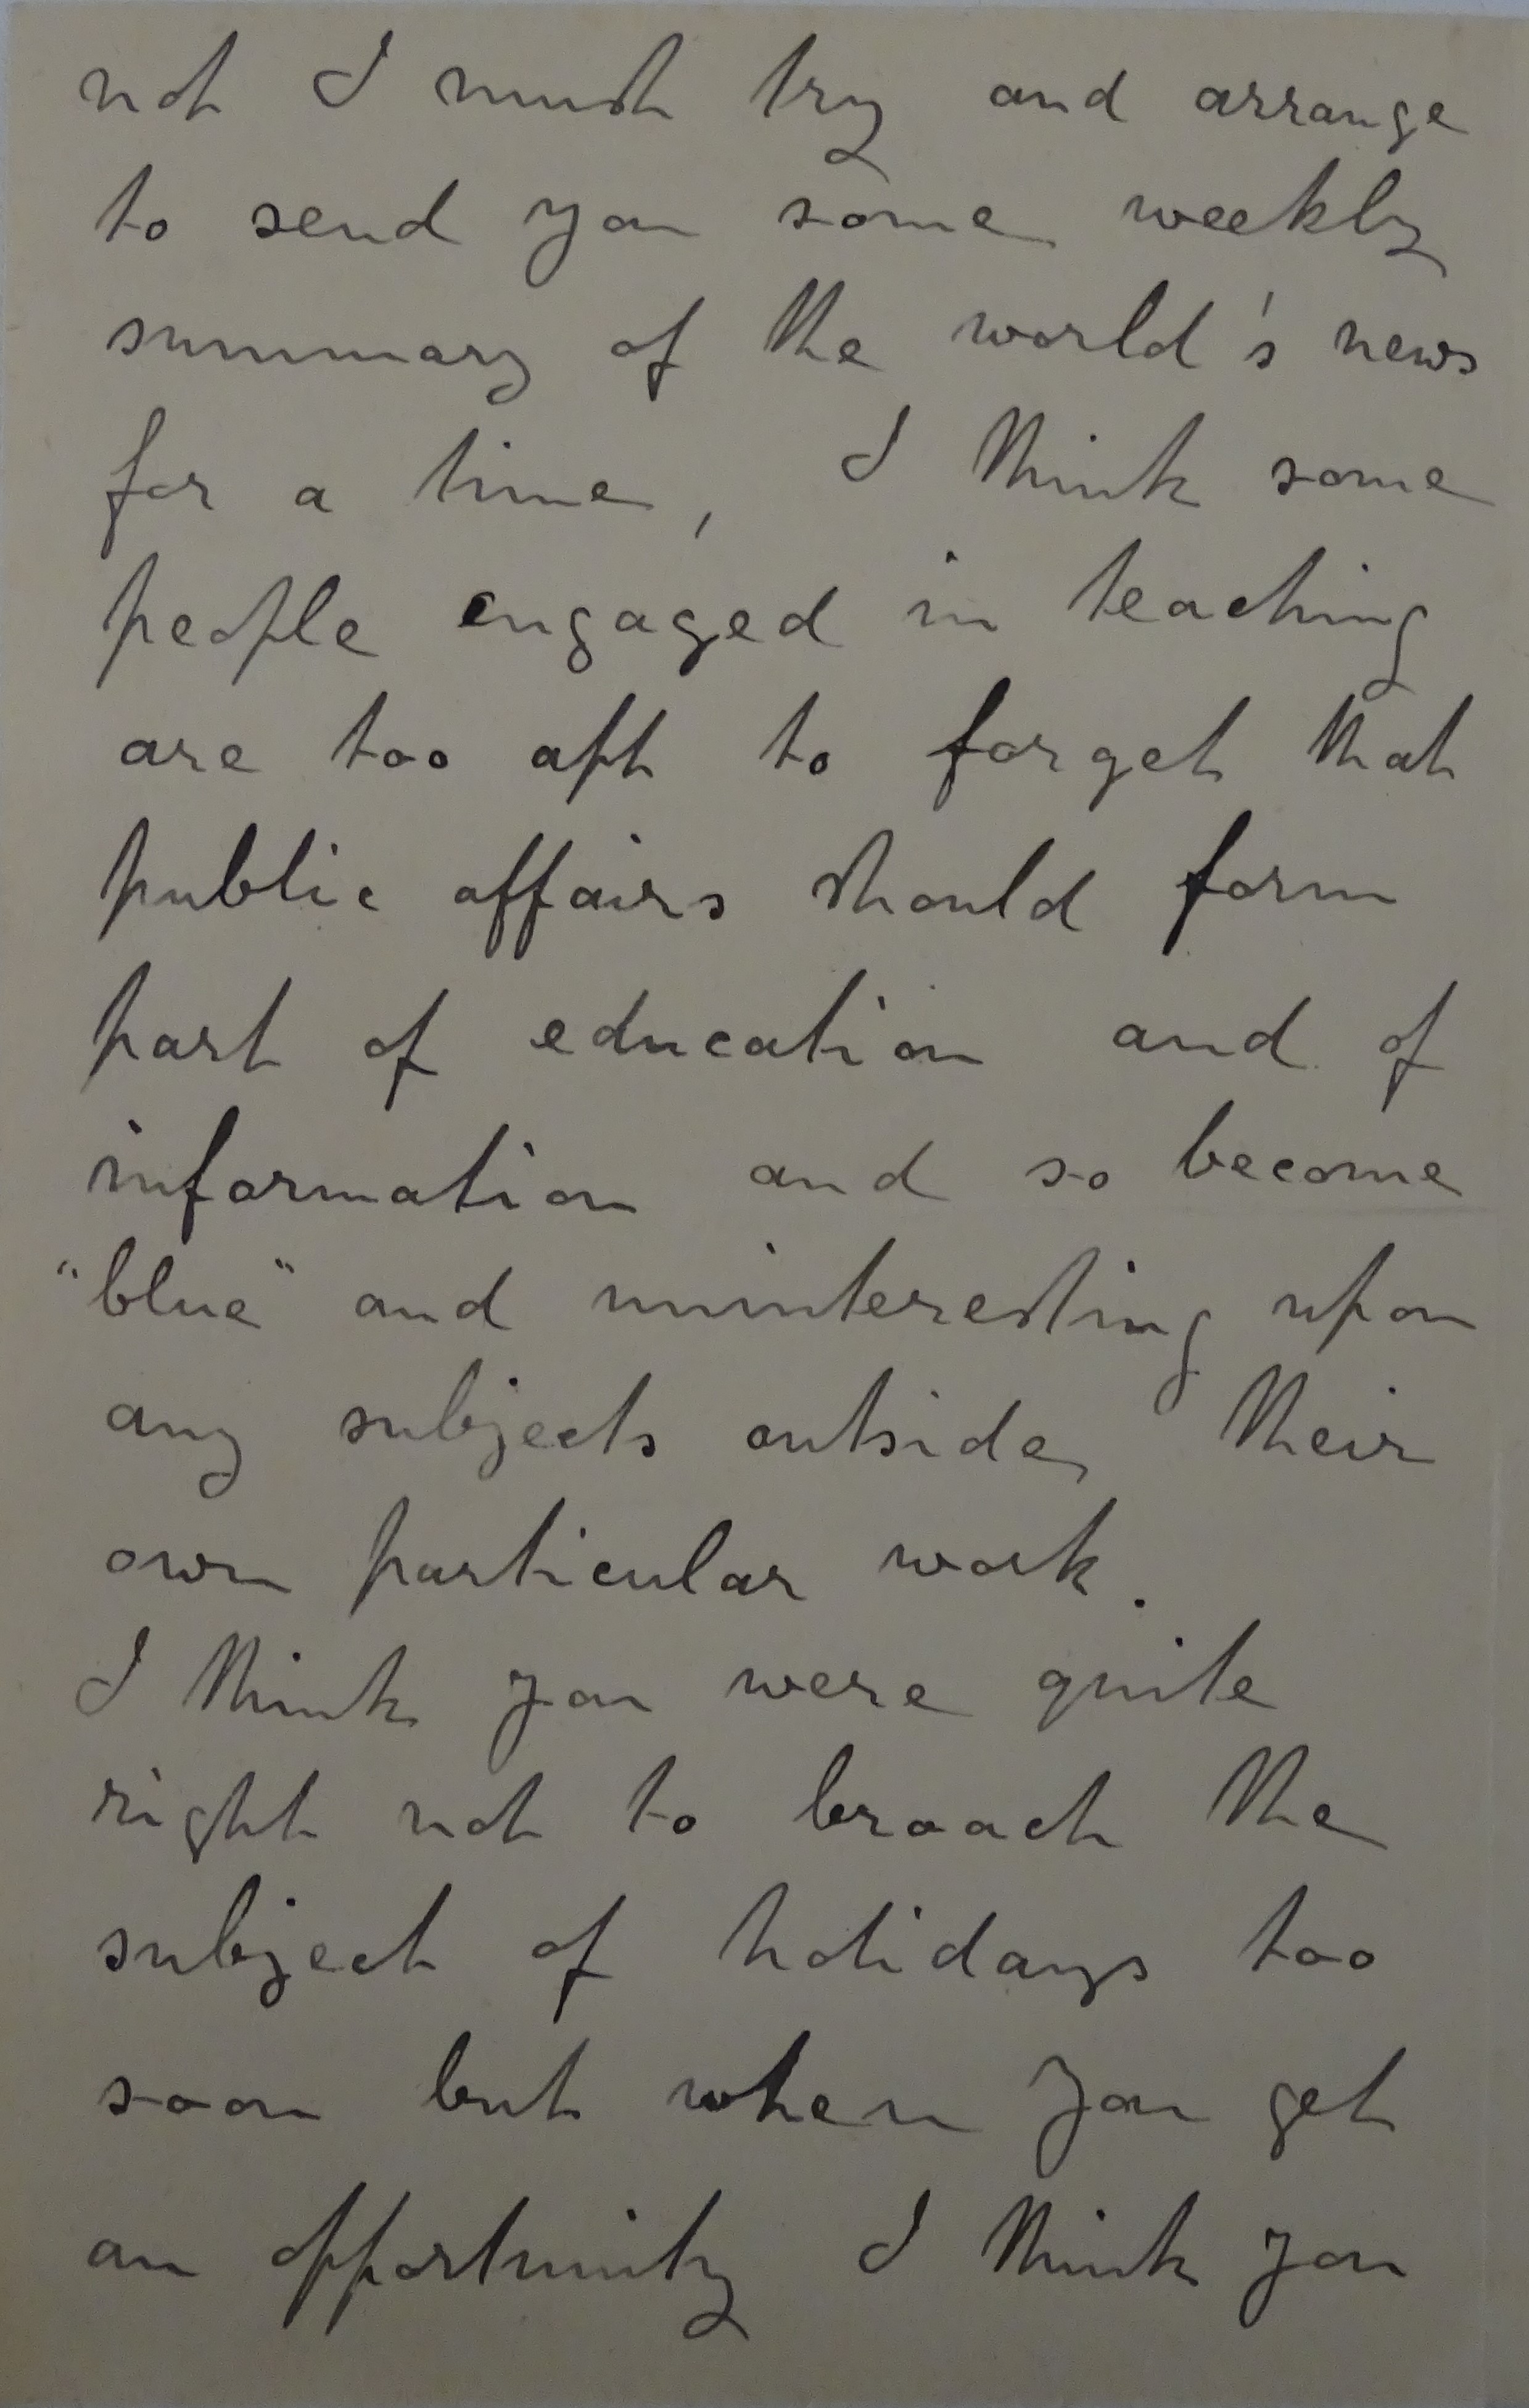 not I must try and arrange
to send you some weekly
summary of the world's news
for a time, I think some
people engaged in teaching
are too apt to forget that
public affairs should form
part of education and of
information and so become
"blue" and uninteresting upon
any subjects outside their
own particular work.
I think you were quite
right not to broach the
subject of holidays too
soon but when you get
an opportunity I think you